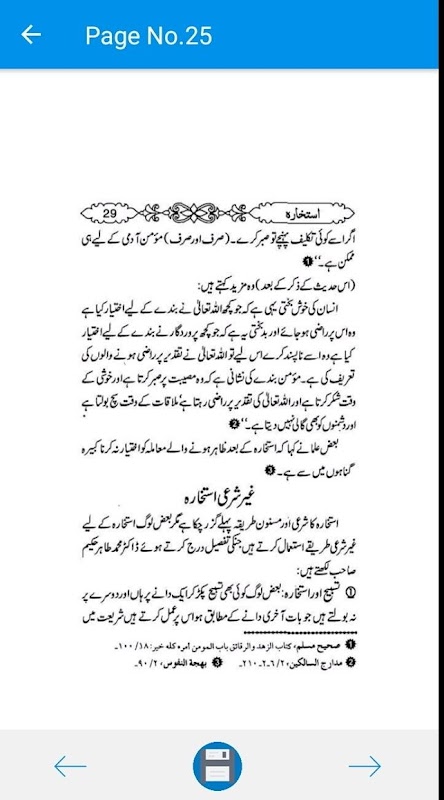 Page No.25
استخارہ 29
اگر اسے کوئی تکلیف پہنچے تو صبر کرے۔ (صرف اور صرف) مؤمن آدمی کے لیے ہی
ممکن ہے۔‘‘ ❶
(اس حدیث کے ذکر کے بعد) وہ مزید کہتے ہیں:
انسان کی خوش بختی یہی ہے کہ جو کچھ اللہ تعالیٰ نے بندے کے لیے اختیار کیا ہے
وہ اس پر راضی ہو جائے اور بدبختی یہ ہے کہ جو کچھ پروردگار نے بندے کے لیے اختیار
کیا ہے وہ اسے ناپسند کرے اس لیے تو اللہ تعالیٰ نے تقدیر پر راضی ہونے والوں کی
تعریف کی ہے۔ مؤمن بندے کی نشانی ہے کہ وہ مصیبت پر صبر کرتا ہے اور خوشی کے
وقت شکر کرتا ہے اور اللہ تعالیٰ کی تقدیر پر راضی رہتا ہے‘ ملاقات کے وقت سچ بولتا ہے
اور دشمنوں کو بھی گالی نہیں دیتا ہے۔‘‘ ❷
بعض علما نے کہا کہ استخارہ کے بعد ظاہر ہونے والے معاملہ کو اختیار نہ کرنا کبیرہ
گناہوں میں سے ہے۔ ❸
غیر شرعی استخارہ
استخارہ کا شرعی اور مسنون طریقہ پہلے گزر چکا ہے مگر بعض لوگ استخارہ کے لیے
غیر شرعی طریقے استعمال کرتے ہیں جنکی تفصیل درج کرتے ہوئے ڈاکٹر محمد طاہر حکیم
صاحب لکھتے ہیں:
① تسبیح اور استخارہ: بعض لوگ کوئی بھی تسبیح پکڑ کر ایک دانے پر ہاں اور دوسرے پر
نہ بولتے ہیں جو بات آخری دانے کے مطابق ہو اس پر عمل کرتے ہیں شریعت میں
❶ صحیح مسلم، کتاب الزھد والرقائق باب المومن أمرہ کلہ خیر: ۱۸/۱۰۰۔
❷ مدارج السالکین، ۲/۶-۲۱۰۔ ❸ بھجة النفوس، ۲/۹۰۔